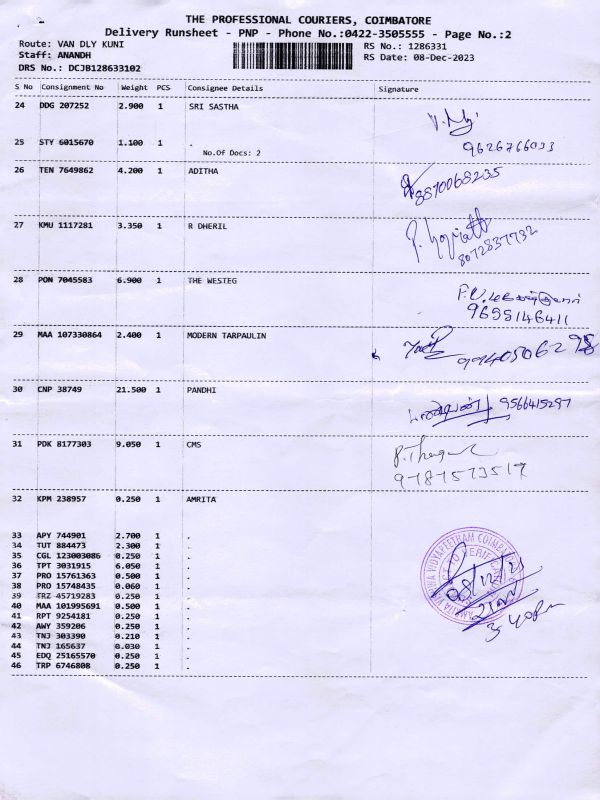 THE PROFESSIONAL COURIERS, COIMBATORE
Delivery Runsheet - PNP - Phone No.:0422-3505555 - Page No.:2
Route: VAN DLY KUNI RS No.: 1286331
Staff: ANANDH RS Date: 08-Dec-2023
DRS No.: DCJB128633102
S No Consignment No Weight PCS Consignee Details Signature
24 DDG 207252 2.900 1 SRI SASTHA
25 STY 6015670 1.100 1 . 9626766033
No.Of Docs: 2
26 TEN 7649862 4.200 1 ADITHA 8870068235
27 KMU 1117281 3.350 1 R DHERIL
8072837732
28 PON 7045583 6.900 1 THE WESTEG
9655146411
29 MAA 107330864 2.400 1 MODERN TARPAULIN
30 CNP 38749 21.500 1 PANDHI 9566415297
31 PDK 8177303 9.050 1 CMS
9787573517
32 KPM 238957 0.250 1 AMRITA
33 APY 744901 2.700 1 .
34 TUT 884473 2.300 1 .
35 CGL 123003086 0.250 1 .
36 TPT 3031915 6.050 1 .
37 PRO 15761363 0.500 1 .
38 PRO 15748435 0.060 1 .
39 TRZ 45719283 0.250 1 .
40 MAA 101995691 0.500 1 .
41 RPT 9254181 0.250 1 .
42 AWY 359206 0.250 1 .
43 TNJ 303390 0.210 1 .
44 TNJ 165637 0.030 1 .
45 EDQ 25165570 0.250 1 .
46 TRP 6746808 0.250 1 .